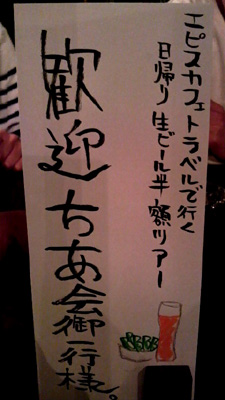 エビスカフェトラベルで行く
日帰り生ビール半額ツアー
歓迎ちあ会御一行様。